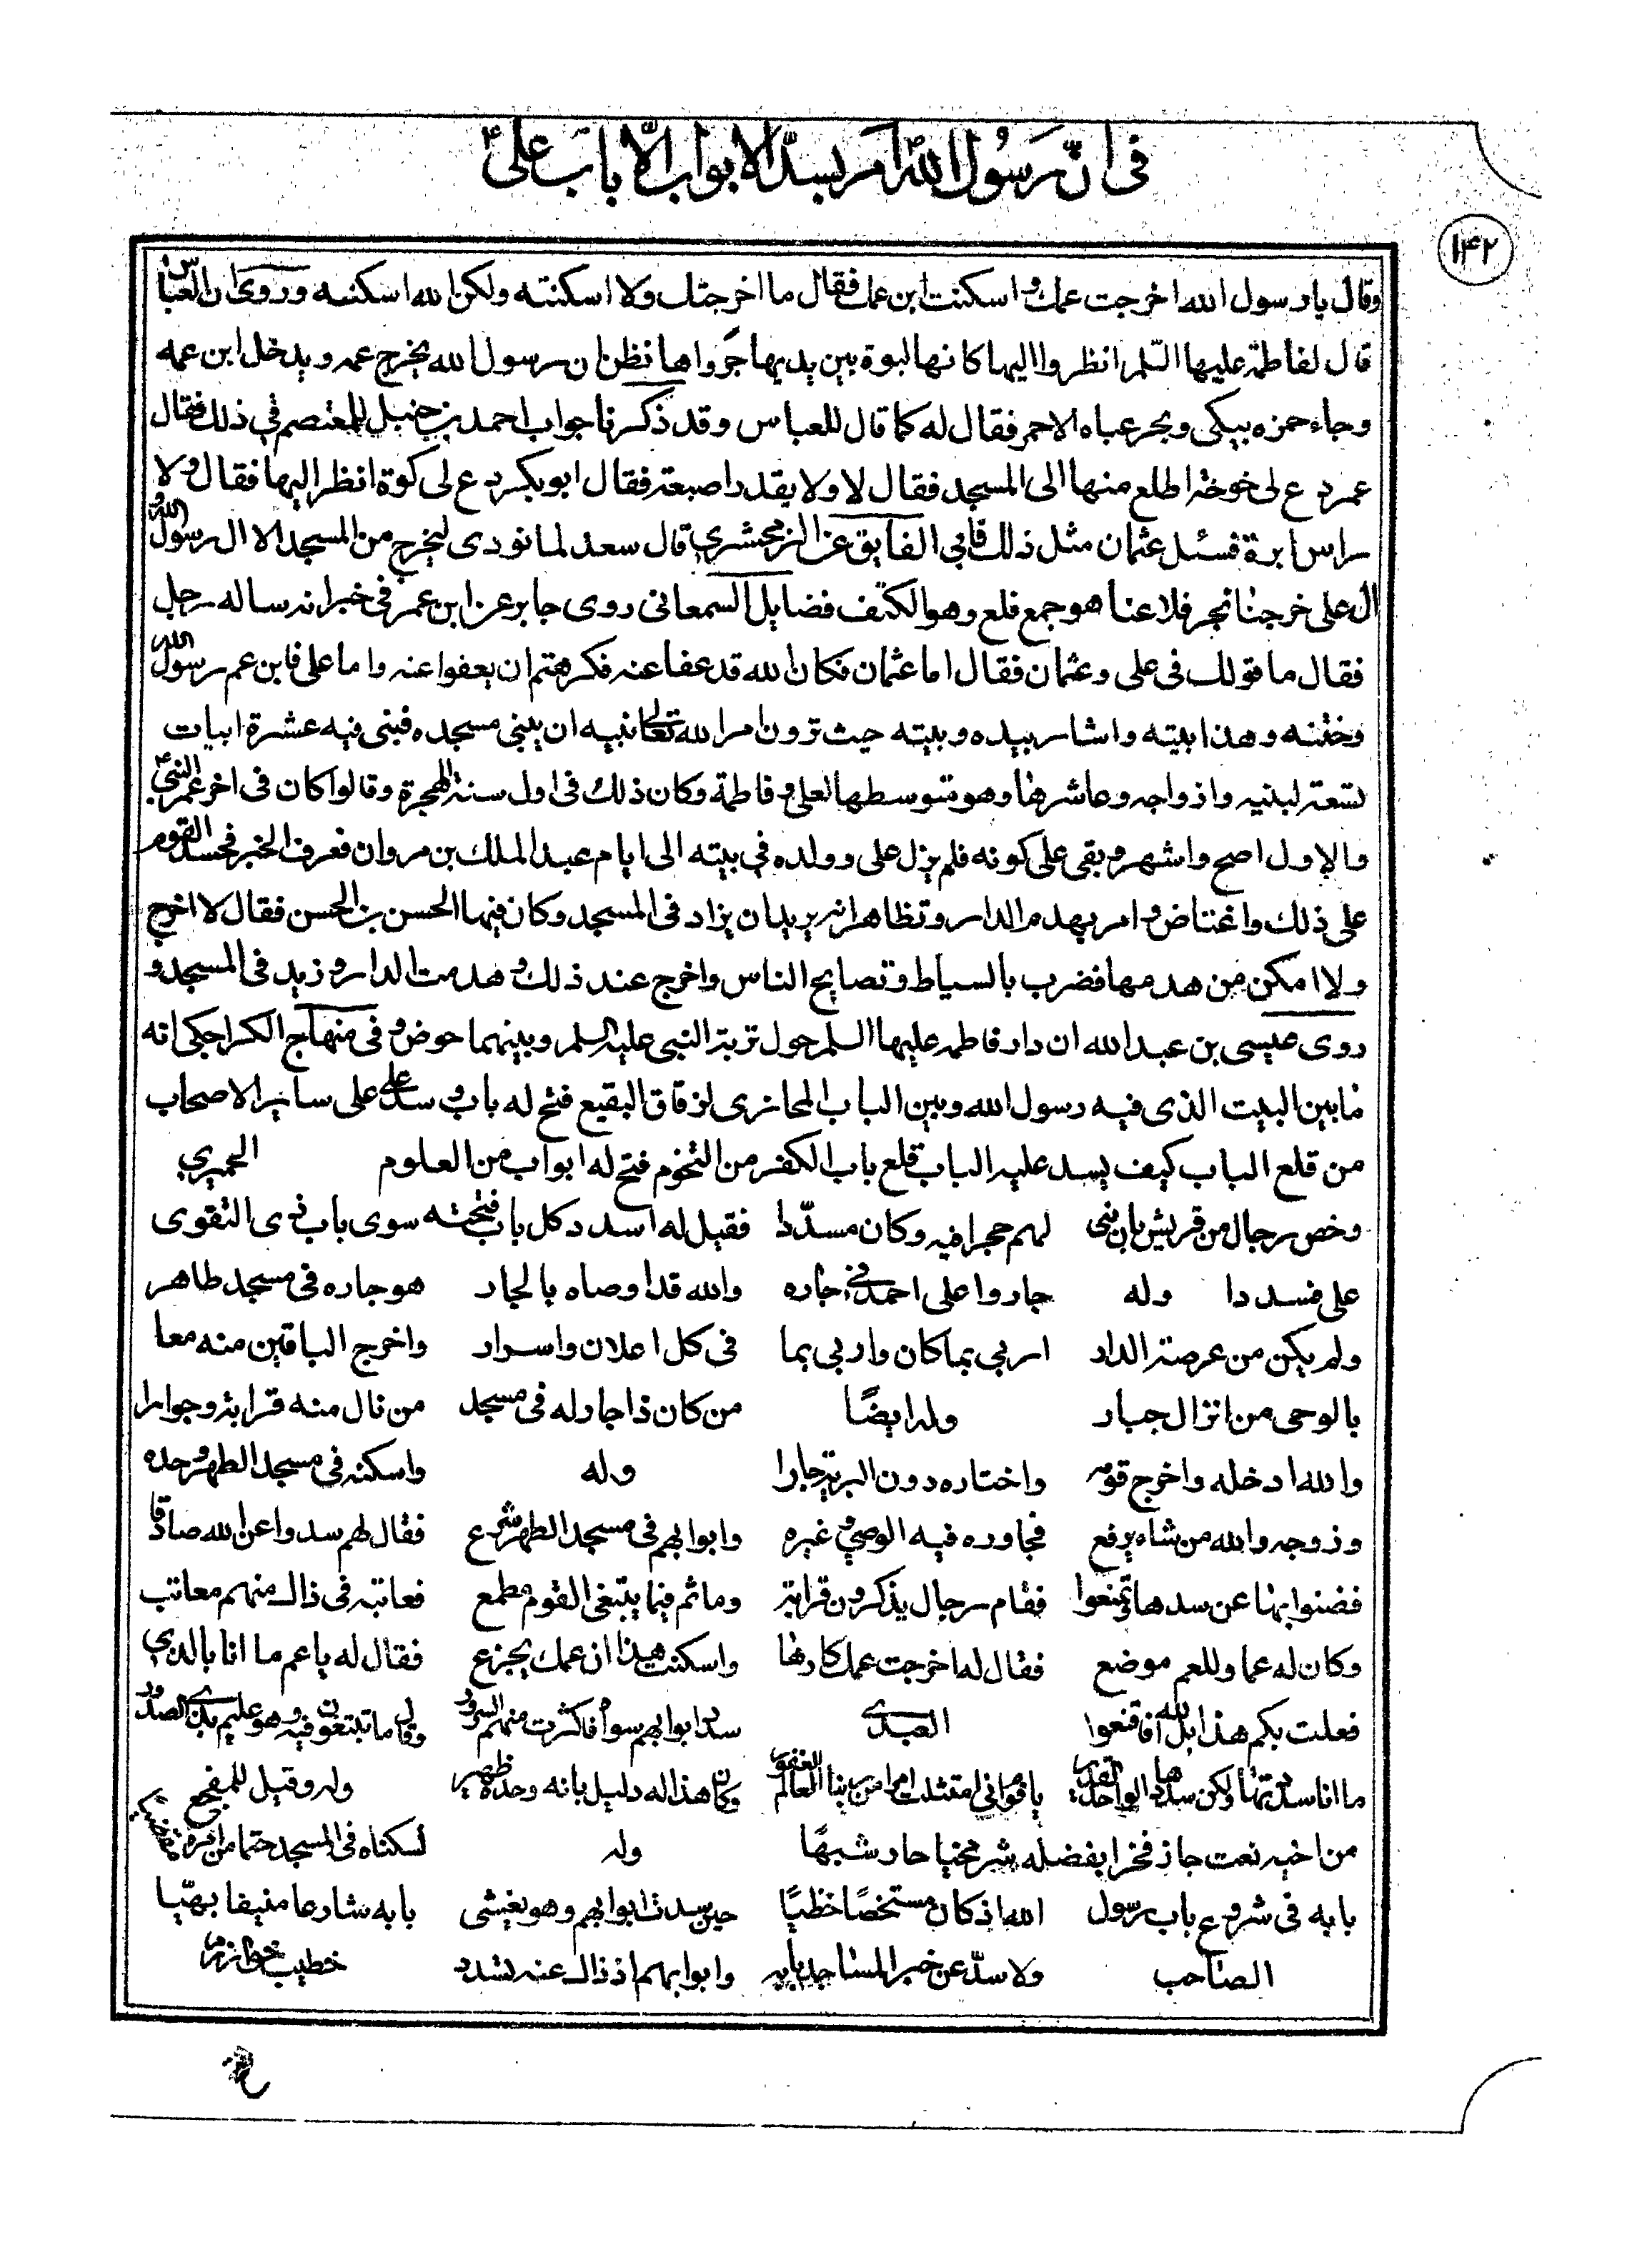 في ان رسول الله امر بسدّ الابواب الّا باب علي ع
١٤٢
وقال يا رسول الله اخرجت عمك و اسكنت ابن عمك فقال ما اخرجتك ولا اسكنته ولكن الله اسكنه وروى ان العباس
قال لفاطمة عليها السّلم انظروا اليها كانها لبوة بين يديها جروا ها نظن ان رسول الله يخرج عمه ويدخل ابن عمه
وجاء حمزه يبكي ويجر عباه الاحمر فقال له كما قال للعباس وقد ذكرنا جواب احمد بن حنبل للمعتصم في ذلك فقال
عمر دع لى خوخة اطلع منها الى المسجد فقال لا ولا بقدر اصبعة فقال ابو بكر دع لى كوة انظر اليها فقال و لا
راس ابرة فسئل عثمان مثل ذلك فابى الفايق عن الزمخشري قال سعد لما نودى ليخرج من المسجد الا ال رسول الله و
ال على خرجنا نجر قلاعنا هو جمع قلع وهو الكنف فضايل السمعانى روى جابر عن ابن عمر فى خبر انه ساله رجل
فقال ما قولك فى على وعثمان فقال اما عثمان فكان الله قد عفا عنه فكرهتم ان يعفوا عنه واما على فابن عم رسول الله
وختنه وهذا بيته واشار بيده وبيته حيث ترون امر الله تعالى نبيه ان يبنى مسجده فبنى فيه عشرة ابيات
تسعة لبنيه وازواجه وعاشرها وهو متوسطها لعلى و فاطمة وكان ذلك فى اول سنة الهجرة وقالوا كان فى اخر عمر النبي ع
والاول اصح واشهر و بقى على كونه فلم يزل على وولده في بيته الى ايام عبد الملك بن مروان فعرف الخبر فحسد القوم
على ذلك واغتاض و امر بهدم الدار وتظاهر انه يريد ان يزاد فى المسجد وكان فيها الحسن بن الحسن فقال لا اخرج
ولا امكن من هدمها فضرب بالسياط وتصايح الناس واخرج عند ذلك و هدمت الدار و زيد فى المسجد و
روى عيسى بن عبد الله ان دار فاطمه عليها السلم حول تربة النبى عليه السلم وبينهما حوض و فى منهاج الكراجكى انه
ما بين البيت الذى فيه رسول الله وبين الباب المحاذى لزقاق البقيع فتح له باب و سد على على ساير الاصحاب
من قلع الباب كيف يسد عليه الباب قلع باب الكفر من التخوم فتح له ابواب من العلوم الحميري
وخص رجال من قريش بان بنى لهم حجرا فيه وكان مسدّدا فقيل له اسدد كل باب فتحته سوى باب ذى التقوى
على فسددا وله جاروا على احمد في جاره والله قد اوصاه بالجار هو جاره فى مسجد طاهر
ولم يكن من عرصة الدار اربى بما كان واربى بما فى كل اعلان واسرار واخرج الباقين منه معا
بالوحى من انزال جبار وله ايضًا من كان ذا جار له فى مسجد من نال منه قرابة وجوارا
والله ادخله واخرج قومه واختاره دون البرية جارا وله واسكنه فى مسجد الطهر وحده
وزوجه والله من شاء يرفع فجاوره فيه الوصي و غيره وابوابهم فى مسجد الطهر شرع فقال لهم سدوا عن الله صادقا
فضنوا بها عن سدها وتمنعوا فقام رجال يذكرون قرابة وما ثم فيما يبتغى القوم مطمع فعاتبه فى ذاك منهم معاتب
وكان له عما وللعم موضع فقال له اخرجت عمك كارها واسكنت هذا ان عمك يجزع فقال له يا عم ما انا بالذي
فعلت بكم هذا بل الله فاقنعوا العبدى سدد ابوابهم سواه فاكثرت منهم وقال ما تبتغون فيه وهو عليم بذى الصدور
ما انا سددتها ولكن سدها الواحد القدير يا قوم انى امتثلت امرا من ربنا العالم الغفور وكان هذا له دليل بانه وحده ظهير وله وقيل للمفجع
من اخيه نعت جاز فخرا بفضله وله لسكناه فى المسجد حتما
بابه فى شروع باب رسول الله اذ كان مستخصًا حظيًا حين سدت ابوابهم وهو يغشى بابه شارعا منيفا بهيّا
الصاحب ولا سدّ عن خير المساجد بابه وابوابهم اذ ذاك عنه تشدد خطيب خوارزم